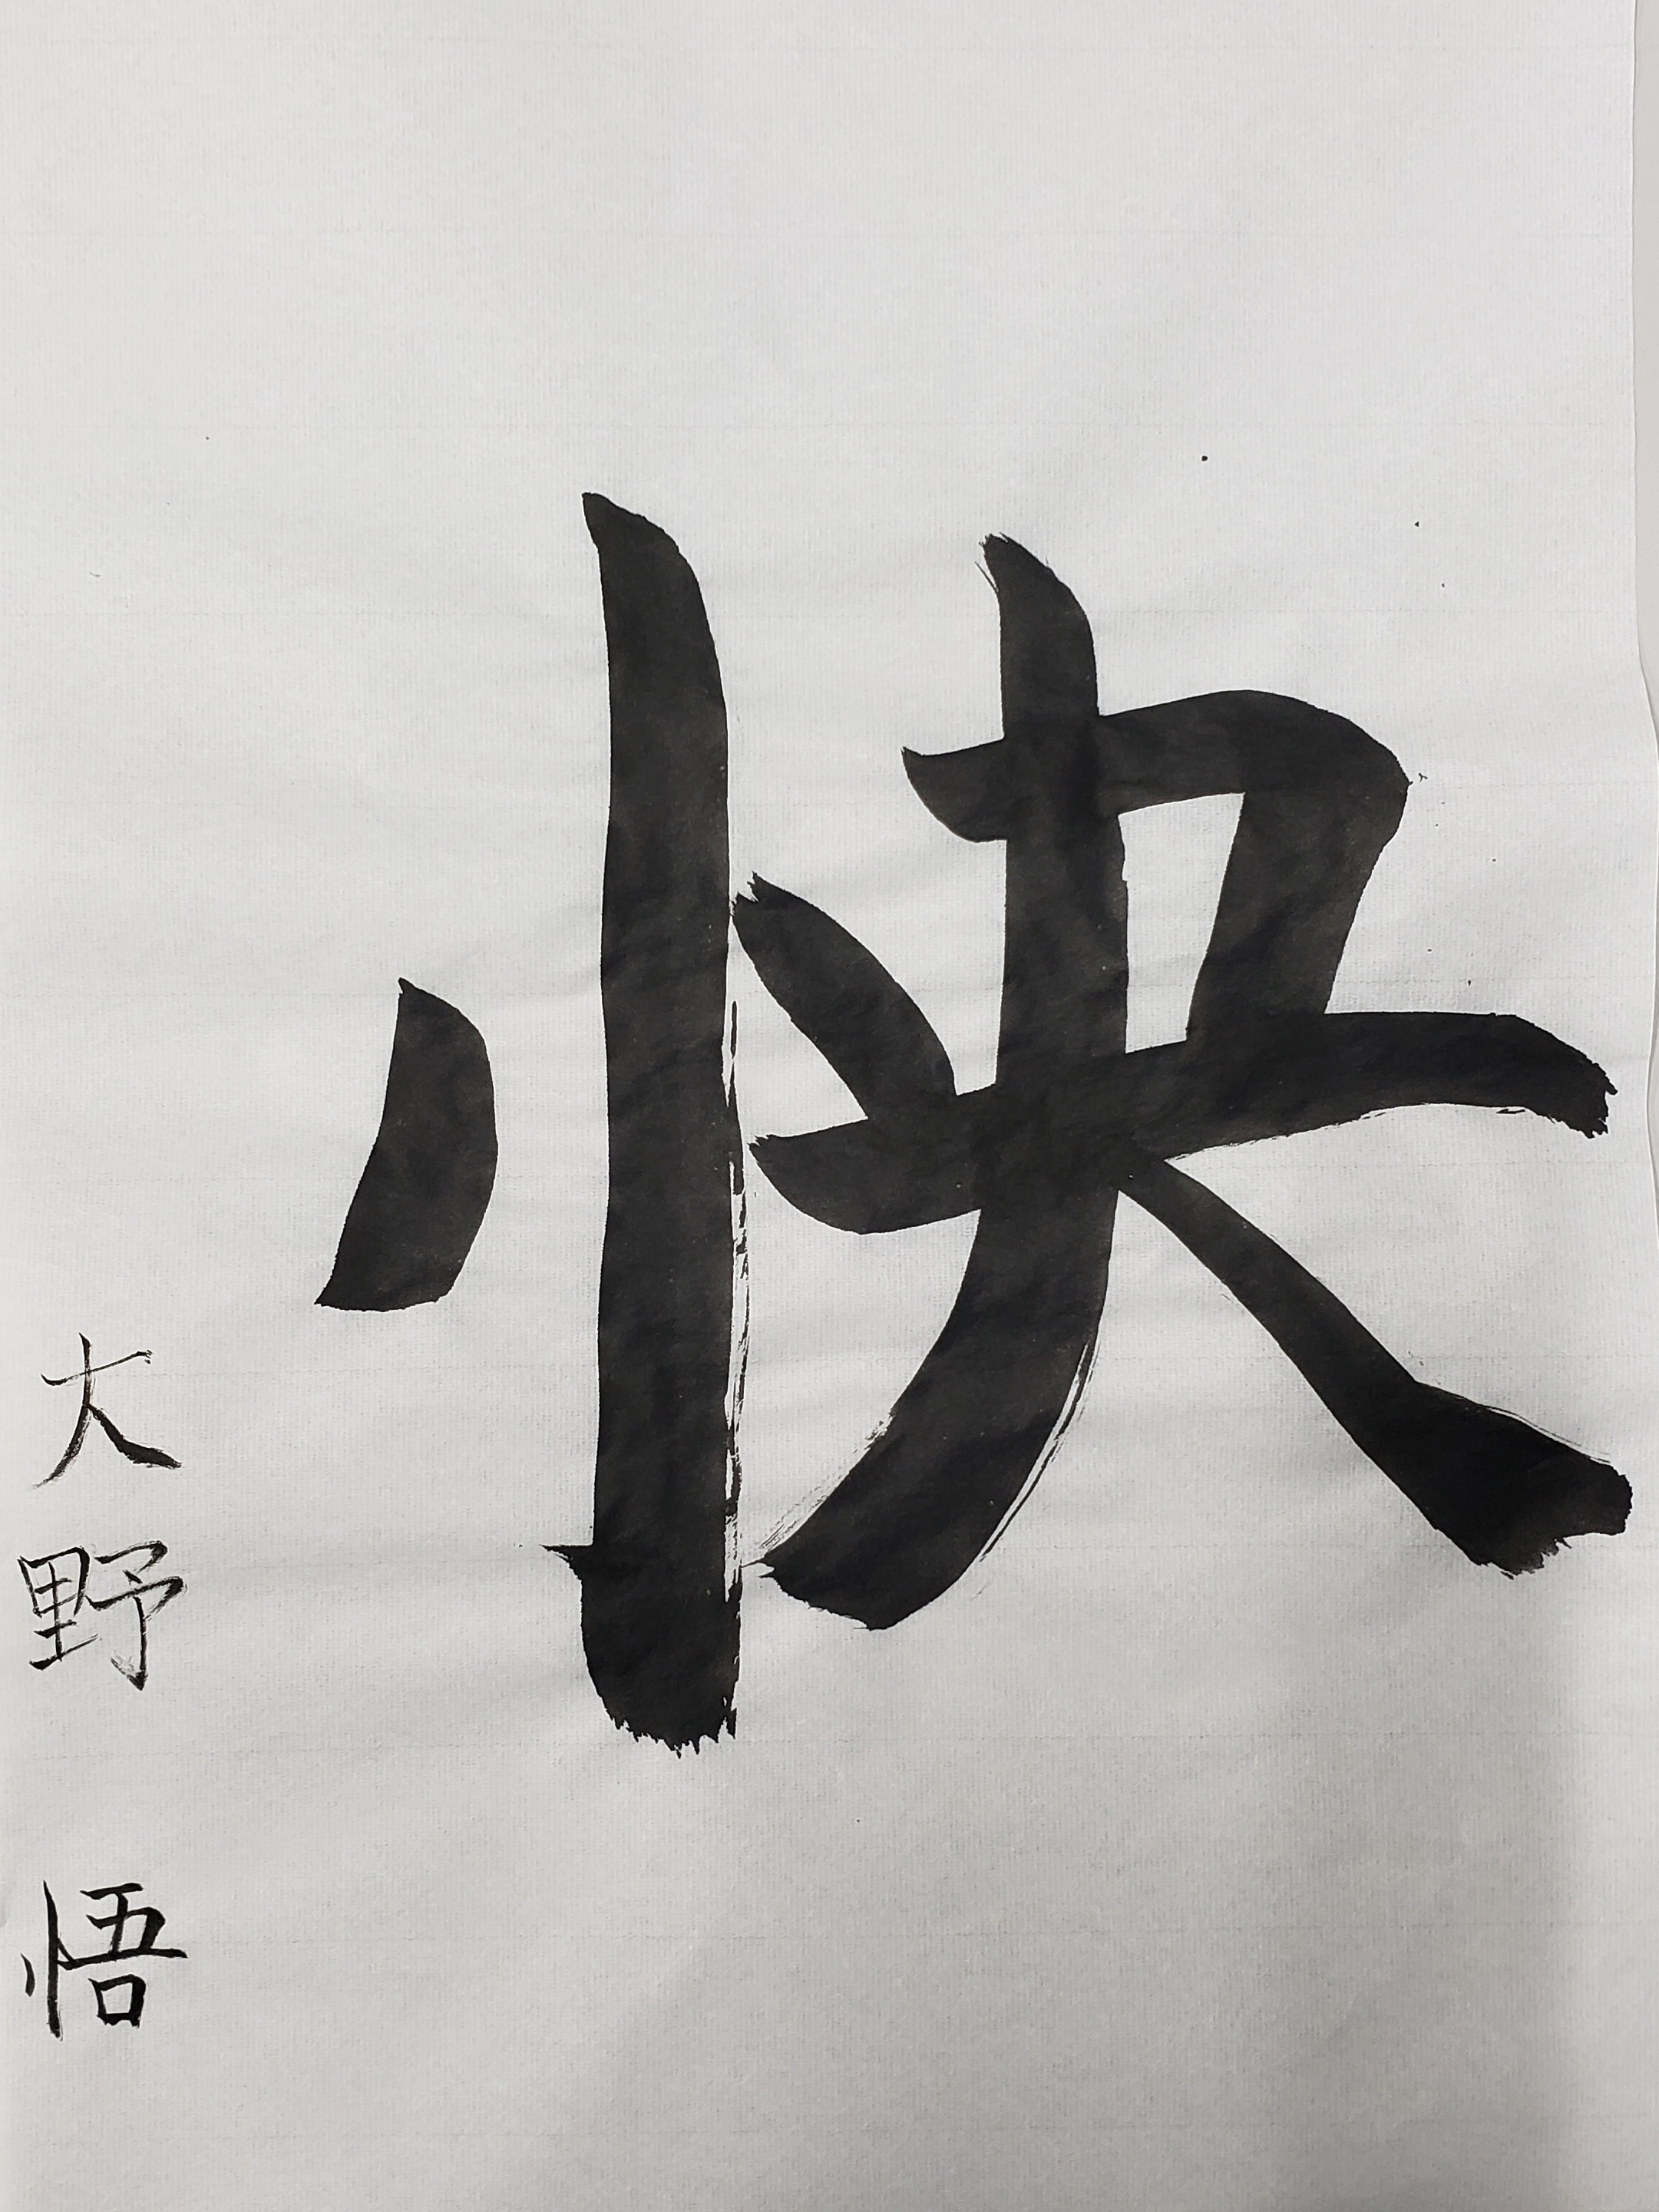 快
大野 悟